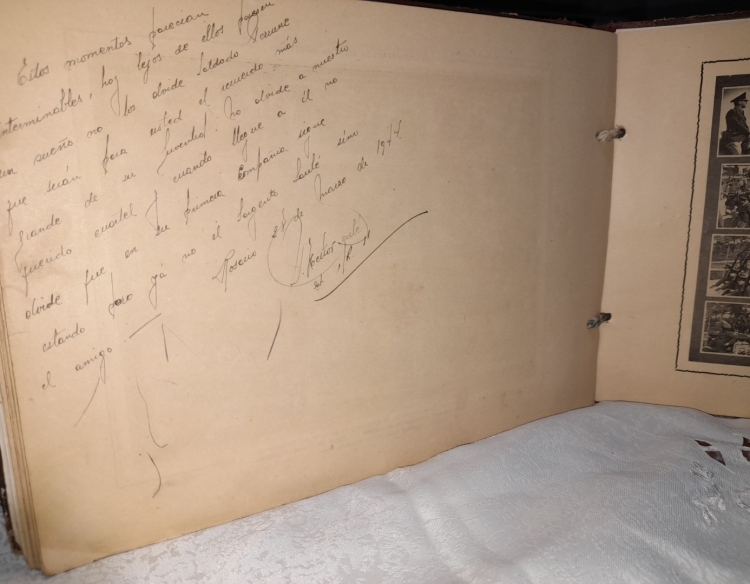 Estos momentos parecian
interminables, hoy lejos de ellos parecen
un sueño no los olvide Soldado
que serán para usted el recuerdo más
grande de su juventud. No olvide a nuestro
querido cuartel y cuando llegue a él no
olvide que en su primera compañia sigue
estando pero ya no el Sargento Sauté sino
el amigo.
Rosario 28 de Marzo de 1944